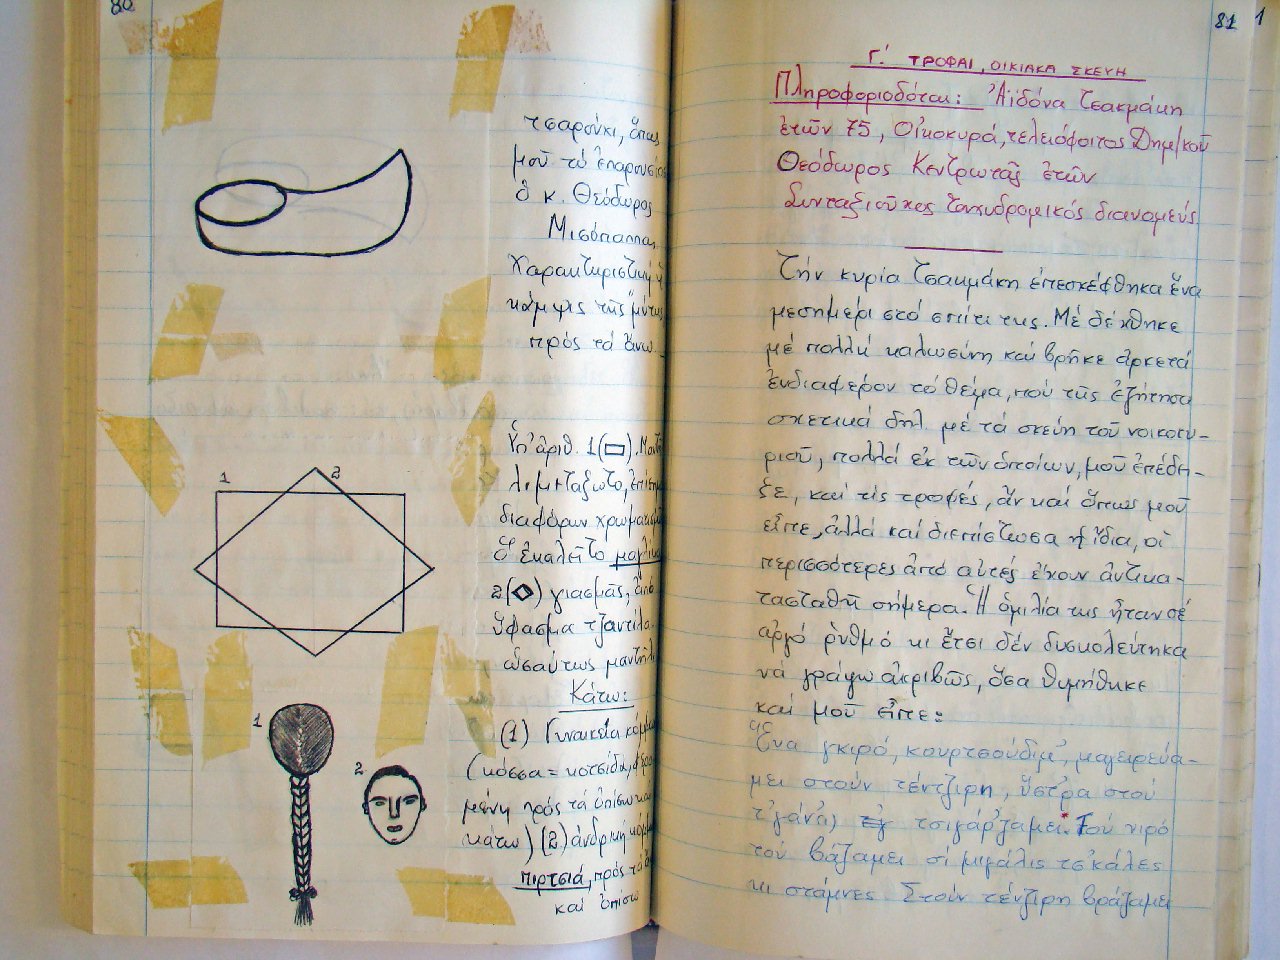 80
τσαρούκι, ὅπως
μοῦ τό ἐπαρουσίασε
ὁ κ. Θεόδωρος
Μισόπαππας
Χαρακτηριστική ἡ
κάμψις τῆς μύτης
πρός τά ἄνω
1
2
Ὑπ' ἀριθ. 1 (▭). Μαντή
λι μεταξωτό,
διαφόρων χρωματισμῶν
ἐκαλεῖτο
2 (◆) γιασμᾶς, ἀπό
ὕφασμα τζαντίλα.
ὡσαύτως μαντήλι
Κάτω:
1
2
(1) Γυναικεία κόμμωσι
(κόσσα = κοτσίδα,
μένη πρός τά ὀπίσω καί
κάτω) (2) ἀνδρική
πιρτσιά, πρός τά
καί ὀπίσω
81
1
Γ΄ ΤΡΟΦΑΙ, ΟΙΚΙΑΚΑ ΣΚΕΥΗ
Πληροφοριοδόται: Ἀϊδόνα Τσακμάκη
ἐτῶν 75, Οἰκοκυρά, τελειόφοιτος Δημ/κοῦ
Θεόδωρος Κεντρωτᾶς ἐτῶν
Συνταξιοῦχος ταχυδρομικός διανομεύς
Τήν κυρία Τσακμάκη ἐπεσκέφθηκα ἕνα
μεσημέρι στό σπίτι της. Μέ δέχθηκε
μέ πολλή καλωσύνη καί βρῆκε ἀρκετά
ἐνδιαφέρον τό θέμα, πού τῆς ἐζήτησα
σχετικά δηλ. μέ τά σκεύη τοῦ νοικοκυ-
ριοῦ, πολλά ἐκ τῶν ὁποίων, μοῦ ἐπέδει-
ξε, καί τίς τροφές, ἄν καί ὅπως μοῦ
εἶπε, ἀλλά καί διεπίστωσα ἡ ἴδια, οἱ
περισσότερες ἀπό αὐτές ἔχουν ἀντικα-
τασταθῆ σήμερα. Ἡ ὁμιλία της ἦταν σέ
ἀργό ρυθμό κι ἔτσι δέν δυσκολεύτηκα
νά γράψω ἀκριβῶς, ὅσα θυμήθηκε
καί μοῦ εἶπε:
"Ἕνα γκιρό, κουρτσούδιμ', μαγειρεύα-
μει στούν τέντζιρη, ὕστρα στού
τ'γάν'ι) τσιγάρ'ζαμει. Τού νιρό
τού βάζαμει σί μιγάλις τσ'κάλες
κι στάμνες. Στούν τέντζιρη βράζαμει